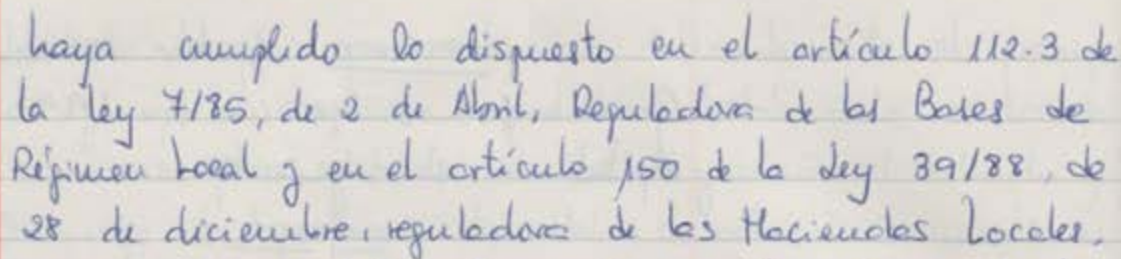 haya cumplido lo dispuesto en el artículo 112.3 de
la ley 7/85, de 2 de Abril, Reguladora de las Bases de
Régimen Local y en el artículo 150 de la Ley 39/88, de
28 de diciembre, reguladora de las Haciendas Locales.